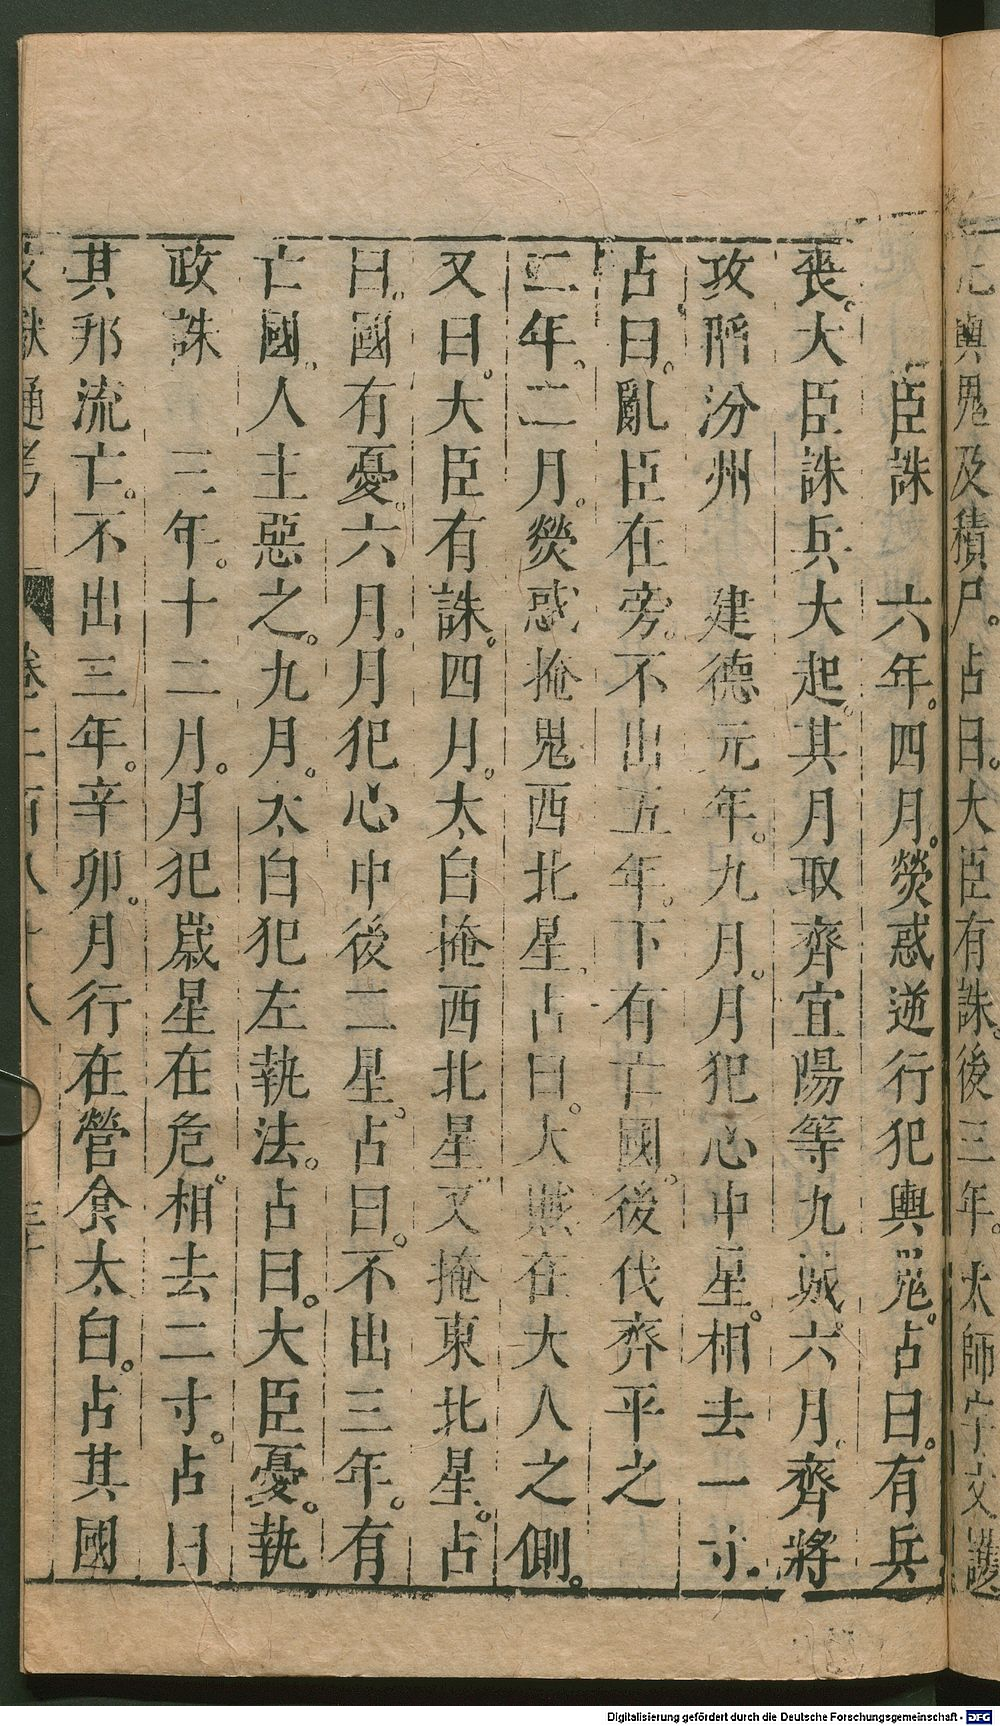 輿鬼及積尸。占曰。大臣有誅。後三年。太師宇文護
臣誅　六年。四月。熒惑逆行犯輿鬼。占曰。有兵
喪。大臣誅兵大起。其月取齊宜陽等九城。六月。齊將
攻陷汾州　建德元年。九月。月犯心中星。相去一寸。
占曰。亂臣在旁。不出五年。下有亡國。後伐齊平之
二年。二月。熒惑掩鬼西北星。占曰。大賊在大人之側。
又曰。大臣有誅。四月。太白掩西北星又掩東北星。占
曰。國有憂。六月。月犯心中後二星。占曰。不出三年。有
亡國。人主惡之。九月。太白犯左執法。占曰。大臣憂。執
政誅　三年。十二月。月犯歲星在危。相去二寸。占曰
其邦流亡。不出三年。辛卯。月行在營食太白。占其國
文獻通考　卷二百八十八
Digitalisierung gefördert durch die Deutsche Forschungsgemeinschaft - DFG